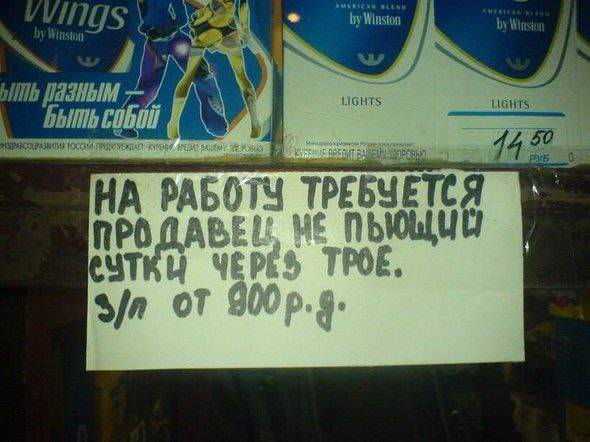 Wings
by Winston
ыть разным —
Быть собой
НЗДРАВСОЦРАЗВИТИЯ РОССИИ ПРЕДУПРЕЖДАЕТ: КУРЕНИЕ ВРЕДИТ ВАШЕМУ ЗДОРОВЬЮ
AMERICAN BLEND
by Winston
LIGHTS
КУРЕНИЕ ВРЕДИТ ВАШЕМУ ЗДОРОВЬЮ
AMERICAN BLEND
by Winston
LIGHTS
14 50
РУБ
НА РАБОТУ ТРЕБУЕТСЯ
ПРОДАВЕЦ НЕ ПЬЮЩИЙ
СУТКИ ЧЕРЕЗ ТРОЕ.
З/п от 900р.д.